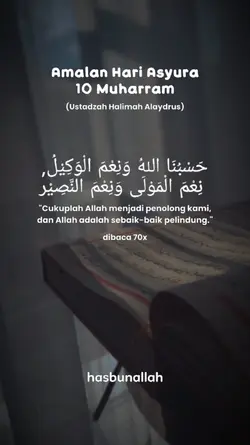 Amalan Hari Asyura
10 Muharram
(Ustadzah Halimah Alaydrus)
حَسْبُنَا اللهُ وَنِعْمَ الْوَكِيْلُ,
نِعْمَ الْمَوْلَى وَنِعْمَ النَّصِيْر
"Cukuplah Allah menjadi penolong kami,
dan Allah adalah sebaik-baik pelindung."
dibaca 70x
hasbunallah